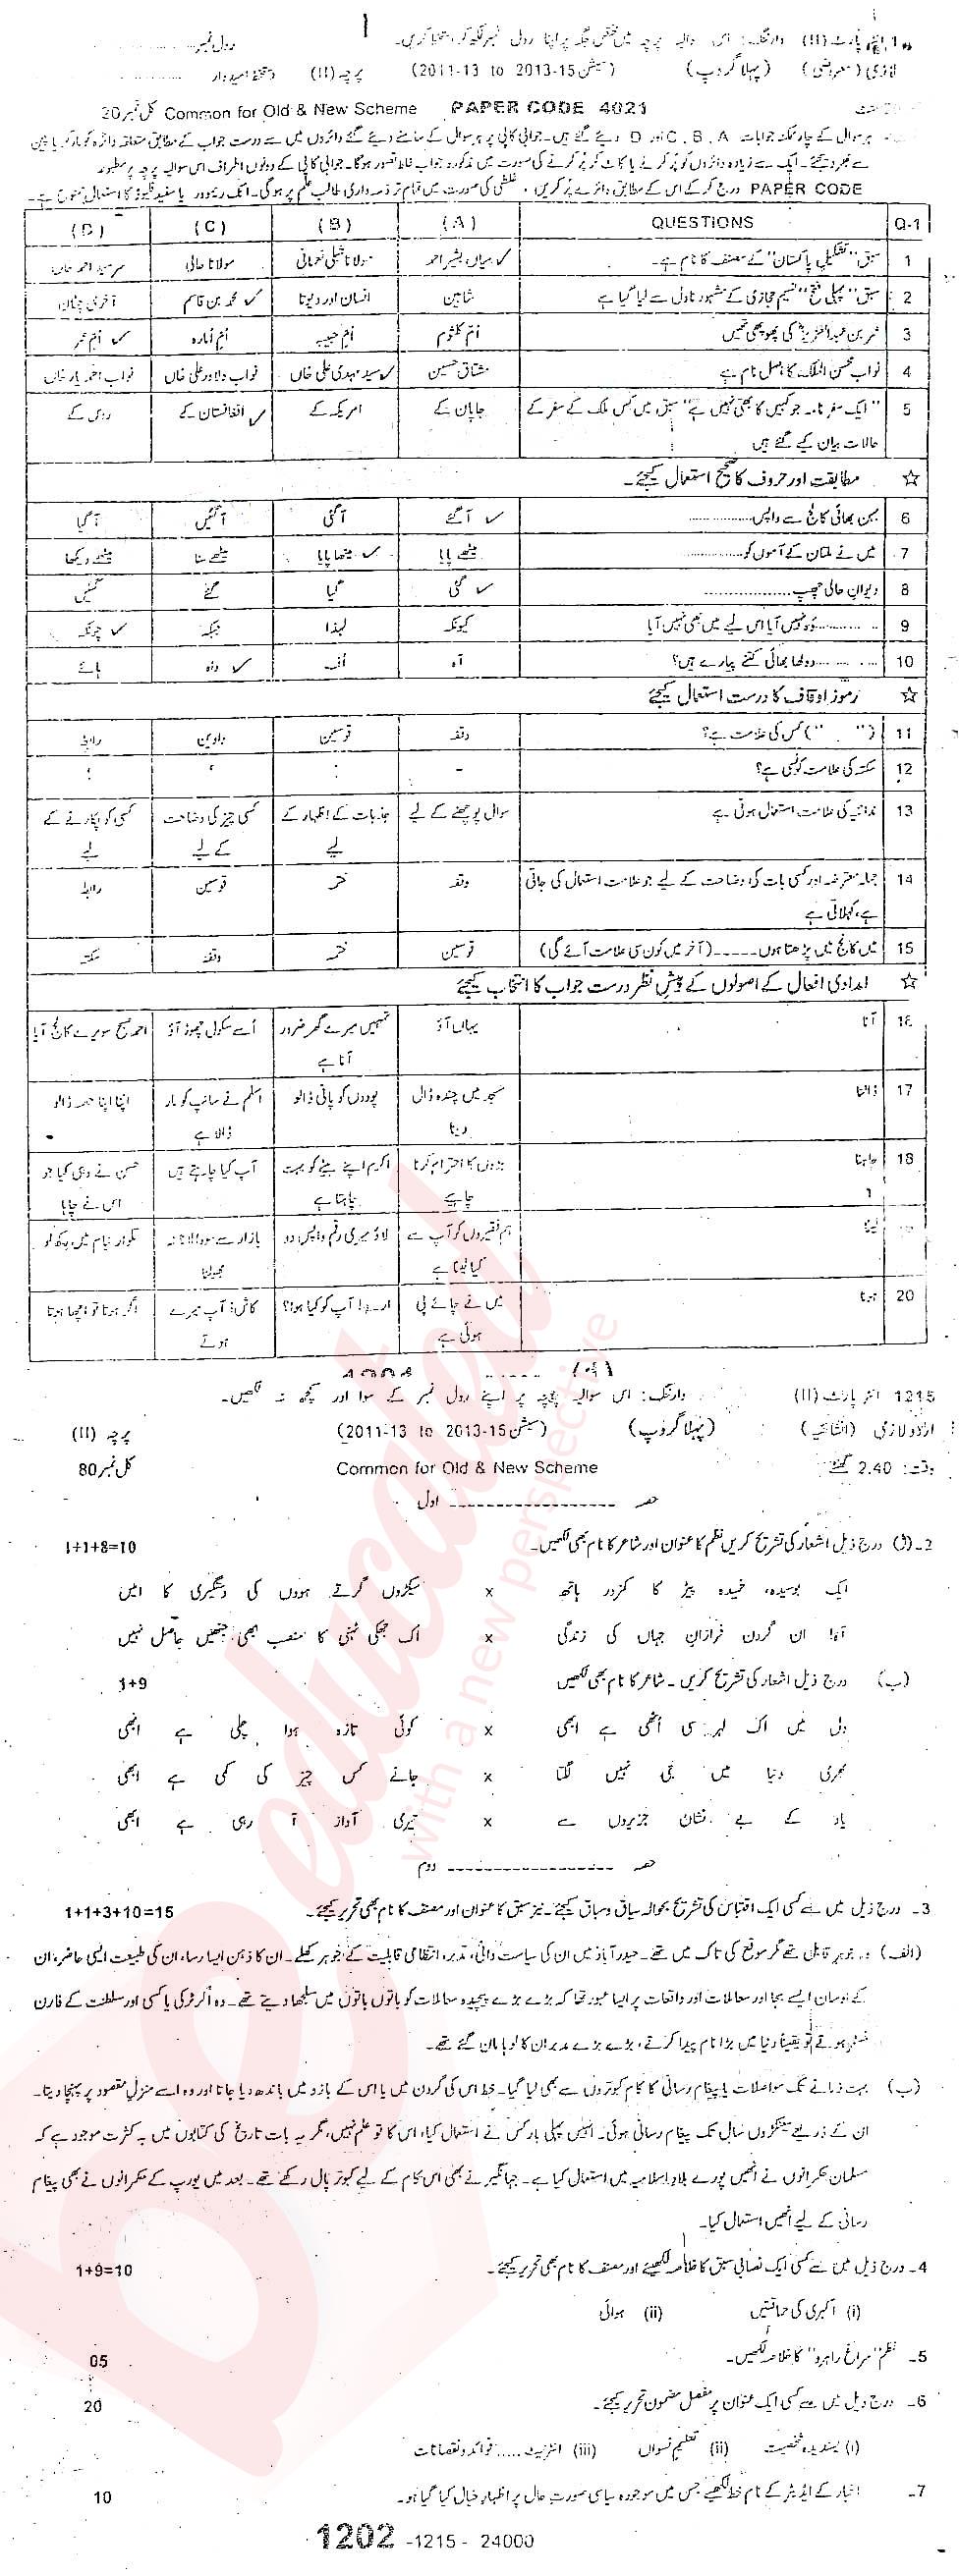 انٹر پارٹ (II) وارننگ: اس سوالیہ پرچہ میں مختص جگہ پر اپنا رول نمبر لکھ کر دستخط کریں۔ رول نمبر
لازمی (معروضی) (پہلا گروپ) (سیشن 15-2013 to 13-2011) پرچہ (II) دستخط امیدوار
PAPER CODE 4021 Common for Old & New Scheme کل نمبر 20
ہر سوال کے چار ممکنہ جوابات A ، B ، C اور D دیئے گئے ہیں۔ جوابی کاپی پر ہر سوال کے سامنے دیئے گئے دائروں میں سے درست جواب کے مطابق متعلقہ دائرہ کو مارکر یا پین
سے بھر دیجئے۔ ایک سے زیادہ دائروں کو پُر کرنے یا کاٹ کر پُر کرنے کی صورت میں مذکورہ جواب غلط تصور ہوگا۔ جوابی کاپی کے دونوں اطراف اس سوالیہ پرچہ پر مطبوعہ
PAPER CODE درج کر کے اس کے مطابق دائرے پُر کریں، غلطی کی صورت میں تمام تر ذمہ داری طالب علم پر ہوگی۔ انک ریموور یا سفید فلیوڈ کا استعمال ممنوع ہے۔
Q-1 QUESTIONS (A) (B) (C) (D)
1 سبق "تشکیلِ پاکستان" کے مصنف کا نام ہے۔ میاں بشیر احمد مولانا شبلی نعمانی مولانا حالی سر سید احمد خاں
2 سبق "پہلی فتح" نسیم حجازی کے مشہور ناول سے لیا گیا ہے شاہین انسان اور دیوتا محمد بن قاسم آخری چٹان
3 عمر بن عبدالعزیز کی پھوپھی تھیں اُم کلثوم اُمِ حبیبہ اُمِ عمارہ اُمِ عمر
4 نواب محسن الملک کا اصل نام ہے مشتاق حسین سید مہدی علی خاں نواب دلاور علی خاں نواب احمد یار خاں
5 "ایک سفر نامہ جو کہیں کا بھی نہیں ہے" سبق میں کس ملک کے سفر کے جاپان کے امریکہ کے افغانستان کے روس کے
حالات بیان کیے گئے ہیں
☆ مطابقت اور حروف کا صحیح استعمال کیجئے۔
6 بہن بھائی کالج سے واپس............... آ گئے آ گئی آ گئیں آ گیا
7 میں نے ملتان کے آموں کو............... میٹھے پایا میٹھا پایا میٹھے سنا میٹھے دیکھا
8 دیوانِ حالی چھپ.................... گئی گیا گئے گئیں
9 ............وہ نہیں آیا اس لیے میں بھی نہیں آیا کیونکہ لہٰذا جبکہ چونکہ
10 ............دولھا بھائی کتنے پیارے ہیں؟ آہ اُف واہ ہائے
☆ رموزِ اوقاف کا درست استعمال کیجئے
11 (" ") کس کی علامت ہے؟ وقفہ قوسین واوین رابطہ
12 سکتہ کی علامت کونسی ہے؟ - : ، ؛
13 ندائیہ کی علامت استعمال ہوتی ہے سوال پوچھنے کے لیے جذبات کے اظہار کے لیے کسی چیز کی وضاحت کے لیے کسی کو پکارنے کے لیے
14 جملہ معترضہ اور کسی بات کی وضاحت کے لیے جو علامت استعمال کی جاتی وقفہ ختمہ قوسین رابطہ
ہے، کہلاتی ہے
15 میں کالج میں پڑھتا ہوں-----(آخر میں کون سی علامت آئے گی) قوسین ختمہ وقفہ سکتہ
☆ امدادی افعال کے اصولوں کے پیشِ نظر درست جواب کا انتخاب کیجئے
16 آنا یہاں آؤ تمہیں میرے گھر ضرور آنا ہے اُسے سکول چھوڑ آؤ احمد صبح سویرے کالج آیا
17 ڈالنا مسجد میں چندہ ڈال دینا پودوں کو پانی ڈالو اسلم نے سانپ کو مار ڈالا ہے اپنا اپنا حصہ ڈالو
18 چاہنا بڑوں کا احترام کرنا چاہیے اکرم اپنے بیٹے کو بہت چاہتا ہے آپ کیا چاہتے ہیں حسن نے وہی کیا جو اس نے چاہا
لینا ہم فقیروں کو آپ سے کیا لینا ہے لاؤ میری رقم واپس دو بازار سے سودا لانا نہ بھولنا تلوار نیام میں رکھ لو
20 ہونا میں نے چائے پی ہوئی ہے ارے! آپ کو کیا ہوا؟ کاش! آپ میرے ہوتے اگر ہوتا تو اچھا ہوتا
1215 انٹر پارٹ (II) وارننگ: اس سوالیہ پرچہ پر اپنے رول نمبر کے سوا اور کچھ نہ لکھیں۔
اردو لازمی (انشائیہ) (پہلا گروپ) (سیشن 15-2013 to 13-2011) پرچہ (II)
وقت: 2.40 گھنٹے Common for Old & New Scheme کل نمبر 80
حصہ ------------------ اول
2۔ (الف) درج ذیل اشعار کی تشریح کریں نظم کا عنوان اور شاعر کا نام بھی لکھیں۔ 1+1+8=10
ایک بوسیدہ، خمیدہ پیڑ کا کمزور ہاتھ x سیکڑوں گرتے ہوؤں کی دستگیری کا امیں
آہ! ان گردن فرازانِ جہاں کی زندگی x اک جھکی ٹہنی کا منصب بھی جنھیں حاصل نہیں
(ب) درج ذیل اشعار کی تشریح کریں۔ شاعر کا نام بھی لکھیں 1+9
دل میں اک لہر سی اٹھی ہے ابھی x کوئی تازہ ہوا چلی ہے ابھی
بھری دنیا میں جی نہیں لگتا x جانے کس چیز کی کمی ہے ابھی
یاد کے بے نشان جزیروں سے x تیری آواز آ رہی ہے ابھی
حصہ ------------------ دوم
3۔ درج ذیل میں سے کسی ایک اقتباس کی تشریح بحوالہ سیاق و سباق کیجئے۔ نیز سبق کا عنوان اور مصنف کا نام بھی تحریر کیجئے۔ 1+1+3+10=15
(الف) وہ جوہرِ قابل تھے مگر موقع کی تاک میں تھے۔ حیدر آباد میں ان کی سیاست دانی، تدبر، انتظامی قابلیت کے جوہر کھلے۔ ان کا ذہن ایسا رسا، ان کی طبیعت ایسی حاضر، ان
کے اوسان ایسے بجا اور معاملات اور واقعات پر ایسا عبور تھا کہ بڑے بڑے پیچیدہ معاملات کو باتوں باتوں میں سلجھا دیتے تھے۔ وہ اگر ٹرکی یا کسی اور سلطنت کے فارن
منسٹر ہوتے تو یقیناً دنیا میں بڑا نام پیدا کرتے، بڑے بڑے مدبر ان کا لوہا مان گئے تھے۔
(ب) بہت زمانے تک مواصلات یا پیغام رسانی کا کام کبوتروں سے بھی لیا گیا۔ خط اس کی گردن میں یا اس کے بازو میں باندھ دیا جاتا اور وہ اسے منزلِ مقصود پر پہنچا دیتا۔
ان کے ذریعے سینکڑوں سال تک پیغام رسانی ہوئی۔ انھیں پہلی بار کس نے استعمال کیا، اس کا تو علم نہیں، مگر یہ بات تاریخ کی کتابوں میں بہ کثرت موجود ہے کہ
مسلمان حکمرانوں نے انھیں پورے بلادِ اسلامیہ میں استعمال کیا ہے۔ جہانگیر نے بھی اس کام کے لیے کبوتر پال رکھے تھے۔ بعد میں یورپ کے حکمرانوں نے بھی پیغام
رسانی کے لیے انھیں استعمال کیا۔
4۔ درج ذیل میں سے کسی ایک نصابی سبق کا خلاصہ لکھیئے اور مصنف کا نام بھی تحریر کیجئے۔ 1+9=10
(i) اکبری کی حماقتیں (ii) ہوائی
5۔ نظم "سراغِ راہرو" کا خلاصہ لکھیں۔ 05
6۔ درج ذیل میں سے کسی ایک عنوان پر مفصل مضمون تحریر کیجئے۔ 20
(i) پسندیدہ شخصیت (ii) تعلیم نسواں (iii) انٹرنیٹ..... فوائد و نقصانات
7۔ اخبار کے ایڈیٹر کے نام خط لکھیے جس میں موجودہ سیاسی صورت حال پر اظہارِ خیال کیا گیا ہو۔ 10
1202 -1215 - 24000
educated
with a new perspective